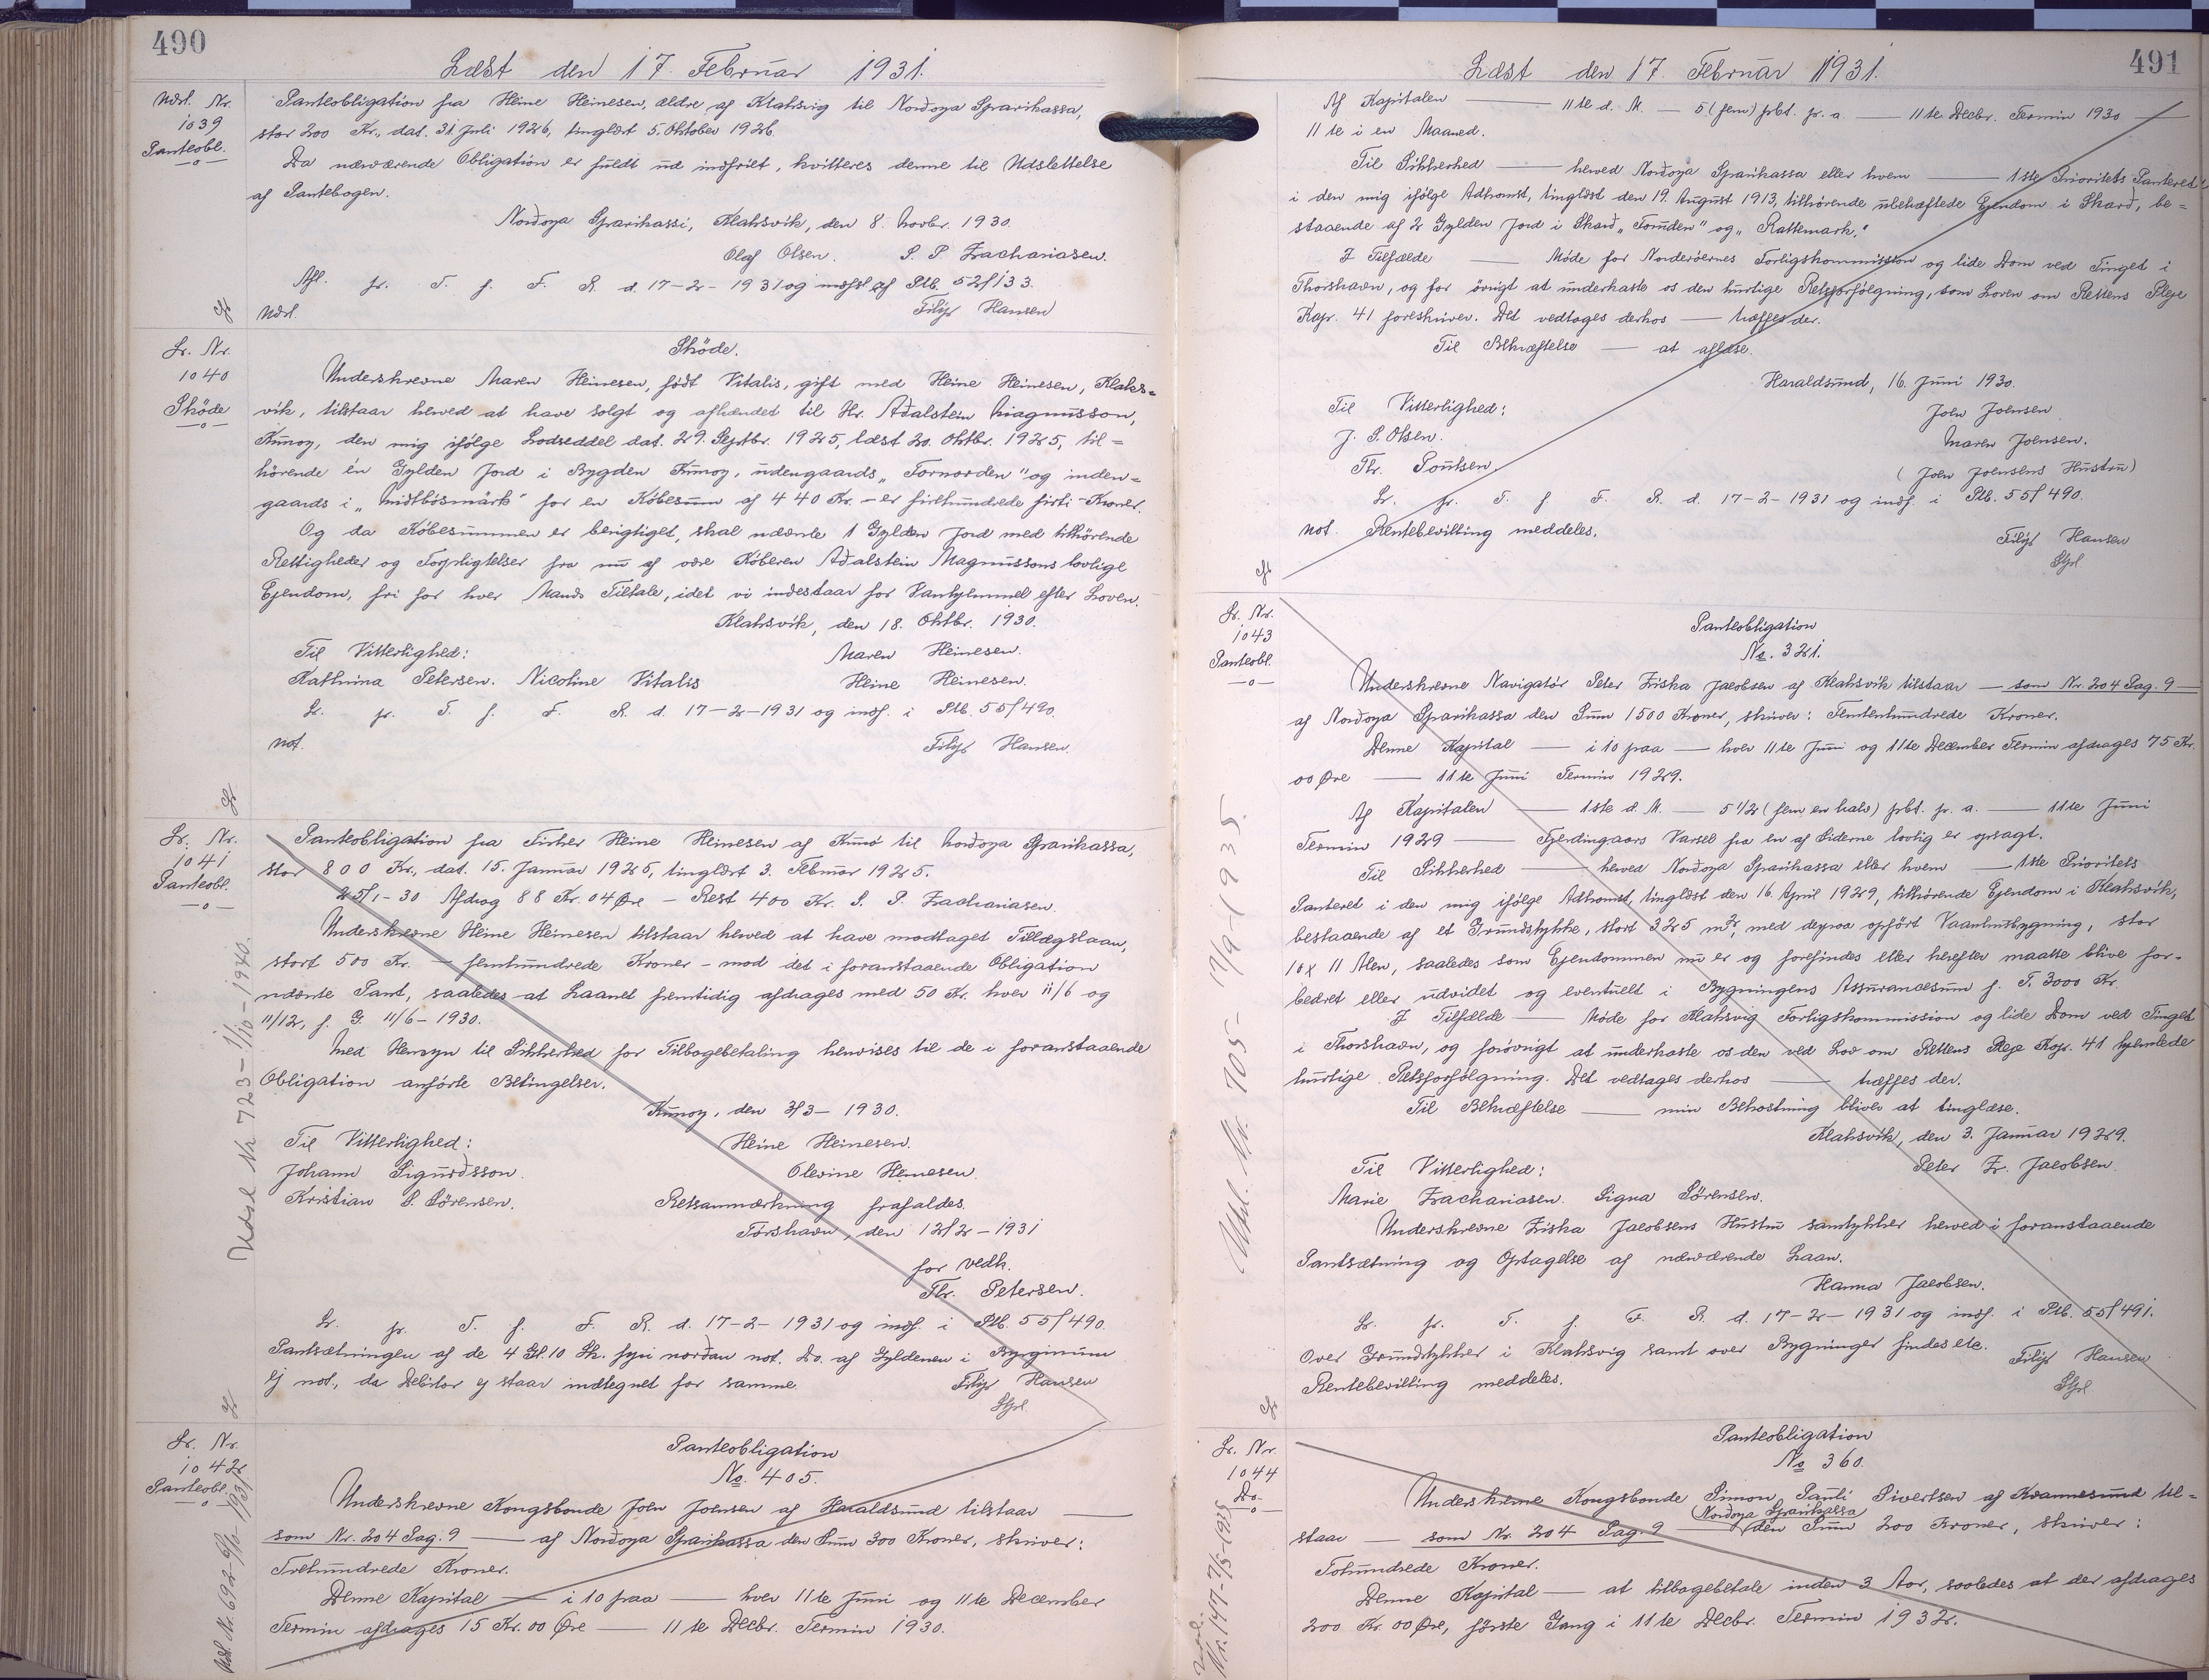 490
Læst den 17. Februar 1931.
Udsl. Nr.
1039
Panteobl.
Panteobligation fra Heine Heinesen, ældre af Klaksvig til Nordoya Sparikassa,
stor 200 Kr., dat. 31. Juli 1926, tinglæst 5. Oktober 1926.
Da nærværende Obligation er fuldt ud indfriet, kvitteres denne til Udslettelse
af Pantebogen.
Nordoya Sparikassi, Klaksvik, den 8. Novbr. 1930.
Olaf Olsen. S. P. Zachariasen.
Afl. pr. T. f. F. R. d. 17-2-1931 og indfst af Ptb. 52/133.
Udsl. Filip Hansen
Lr. Nr.
1040
Skøde
Skøde.
Underskrevne Maren Heinesen, født Vitalis, gift med Heine Heinesen, Klaks=
vik, tilstaar herved at have solgt og afhændet til Hr. Aðalstein Magnusson,
Kunoy, den mig ifølge Lodseddel dat. 29. Septbr. 1925, læst 20. Oktbr. 1925, til=
hørende én Gylden Jord i Bygden Kunoy, udengaards „Fornorden" og inden=
gaards i „Midtbøsmark" for en Købesum af 440 Kr. - er firehundrede firti - Kroner.
Og da Købesummen er berigtiget, skal nævnte 1 Gylden Jord med tilhørende
Rettigheder og Forpligtelser fra nu af være Køberen Aðalstein Magnussons lovlige
Ejendom, fri for hver Mands Tiltale, idet vi indestaar for Vanhjemmel efter Loven.
Klaksvik, den 18. Oktbr. 1930.
Til Vitterlighed: Maren Heinesen.
Kathrina Petersen. Nicoline Vitalis Heine Heinesen.
Lr. pr. T. f. F. R. d. 17-2-1931 og indf. i Ptb. 55/490.
not. Filip Hansen.
Lr. Nr.
1041
Panteobl.
Udsl Nr 723 - 1/10 - 1940.
Panteobligation fra Fisker Heine Heinesen af Kunø til Nordoya Sparikassa,
stor 800 Kr., dat. 15. Januar 1925, tinglæst 3. Februar 1925.
25/1-30 Afdrag 88 Kr. 04 Øre - Rest 400 Kr. S. P. Zachariasen.
Underskrevne Heine Heinesen tilstaar herved at have modtaget Tillægslaan,
stort 500 Kr. - femhundrede Kroner - mod det i foranstaaende Obligation
nævnte Pant, saaledes at Laanet fremtidig afdrages med 50 Kr. hver 11/6 og
11/12, f. G. 11/6 - 1930.
Med Hensyn til Sikkerhed for Tilbagebetaling henvises til de i foranstaaende
Obligation anførte Betingelser.
Kunoy, den 3/3 - 1930.
Til Vitterlighed: Heine Heinesen.
Johann Sigurdsson. Olevine Heinesen.
Kristian S. Sørensen. Retsanmærkning frafaldes.
Torshavn, den 12/2 - 1931
for vedk.
Thr. Petersen.
Lr. pr. T. f. F. R. d. 17-2-1931 og indf. i Ptb. 55/490.
Pantsætningen af de 4 Gl. 10 Sk. fyri nordan not. Do. af Gyldenen i Bygginum
ej not., da Debitor ej staar indtegnet for samme. Filip Hansen
Lr. Nr.
1042
Panteobl.
Udsl. Nr. 692 -
Panteobligation
No. 405.
Underskrevne Kongsbonde Joen Joensen af Haraldsund tilstaar
som Nr. 204 Pag. 9 — af Nordoya Sparikassa den Sum 300 Kroner, skriver:
Trehundrede Kroner.
Denne Kapital — i 10 paa — hver 11te Juni og 11te December
Termin afdrages 15 Kr. 00 Øre — 11te Decbr. Termin 1930.
491
Læst den 17. Februar 1931.
Af Kapitalen — 11te d. M. — 5 (fem) prct. pr. a. — 11te Decbr. Termin 1930 —
11te i en Maaned.
Til Sikkerhed — herved Nordoya Sparikassa eller hvem — 1ste Prioritets Panteret
i den mig ifølge Adkomst, tinglæst den 19. August 1913, tilhørende ubehæftede Ejendom i Skarð, be=
staaende af 2 Gylden Jord i Skarð „Tounden" og „Rattemark."
I Tilfælde — Møde for Norderøernes Forligskommission og lide Dom ved Tinget i
Thorshavn, og for øvrigt at underkaste os den hurtige Retsforfølgning, som Loven om Rettens Pleje
Kap. 41 foreskriver. Det vedtages derhos — træffes der.
Til Bekræftelse — at aflæse.
Haraldsund, 16. Juni 1930.
Til Vitterlighed: Joen Joensen
J. P. Olsen. Maren Joensen.
Thr. Poulsen. (Joen Joensens Hustru)
Lr. pr. T. f. F. R. d. 17-2-1931 og indf. i Ptb. 55/490.
not. Rentebevilling meddeles.
Filip Hansen
Lr. Nr.
1043
Panteobl.
Udsl. Nr. 705 - 17/9-1935.
Panteobligation
No. 321.
Underskrevne Navigatør Peter Ziska Jacobsen af Klaksvik tilstaar — som Nr. 204 Pag. 9 —
af Nordoya Sparikassa den Sum 1500 Kroner, skriver: Femtenhundrede Kroner.
Denne Kapital — i 10 paa — hver 11te Juni og 11te December Termin afdrages 75 Kr.
00 Øre — 11te Juni Termin 1929.
Af Kapitalen — 1ste d. M. — 5 1/2 (fem en halv) prct. pr. a. — 11te Juni
Termin 1929 — Fjerdingaars Varsel fra en af Siderne lovlig er opsagt.
Til Sikkerhed — herved Nordoya Sparikassa eller hvem — 1ste Prioritets
Panteret i den mig ifølge Adkomst, tinglæst den 16. April 1929, tilhørende Ejendom i Klaksvik,
bestaaende af et Grundstykke, stort 325 m², med derpaa opført Vaaningsbygning, stor
10 x 11 Alen, saaledes som Ejendommen nu er og forefindes eller herefter maatte blive for=
bedret eller udvidet og eventuelt i Bygningens Assurancesum f. T. 3000 Kr.
I Tilfælde — Møde for Klaksvig Forligskommission og lide Dom ved Tinget
i Thorshavn, og forøvrigt at underkaste os den ved Lov om Rettens Pleje Kap. 41 hjemlede
hurtige Retsforfølgning. Det vedtages derhos — træffes der.
Til Bekræftelse — min Bekostning bliver at tinglæse.
Klaksvik, den 3. Januar 1929.
Til Vitterlighed: Peter Z. Jacobsen.
Marie Zachariasen. Signa Sørensen.
Underskrevne Ziska Jacobsens Hustru samtykker herved i foranstaaende
Pantsætning og Optagelse af nærværende Laan.
Hanna Jacobsen.
Lr. pr. T. f. F. R. d. 17-2-1931 og indf. i Ptb. 55/491.
Over Grundstykker i Klaksvig samt over Bygninger findes etc. Filip Hansen
Rentebevilling meddeles.
Lr. Nr.
1044
Do.
Nr. 147 - 7/5-1935
Panteobligation
No 360.
Underskrevne Kongsbonde Simon Pauli Sivertsen af Kvannesund til=
staar — som Nr. 204 Pag. 9 — (Nordoya Sparikassa) den Sum 200 Kroner, skriver:
Tohundrede Kroner.
Denne Kapital — at tilbagebetale inden 3 Aar, saaledes at der afdrages
200 Kr. 00 Øre, første Gang i 11te Decbr. Termin 1932.